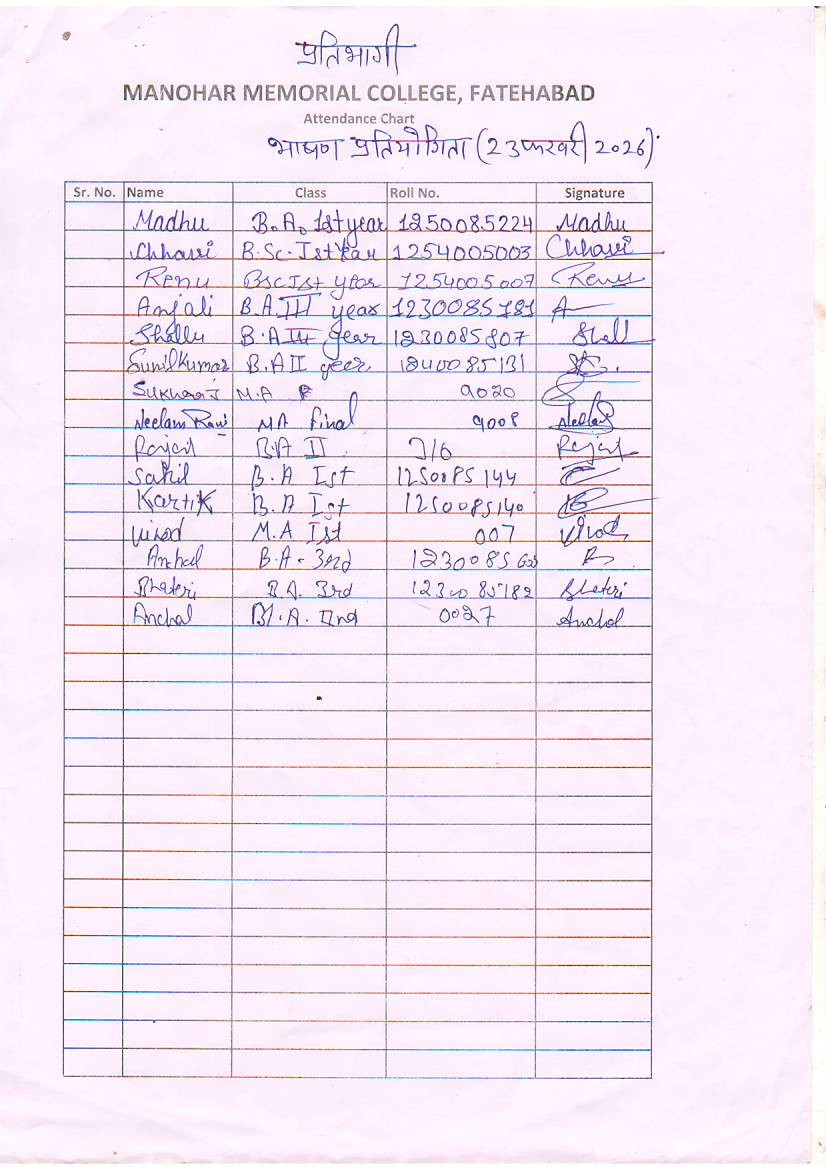 प्रतिभागी
MANOHAR MEMORIAL COLLEGE, FATEHABAD
Attendance Chart
भाषण प्रतियोगिता (23 फरवरी 2026)
Sr. No. Name Class Roll No. Signature
Madhu B.A. 1st year 1250085224 Madhu
Chhavi B.Sc. Ist Year 1254005003 Chhavi
Renu BSc Ist year 1254005007 Renu
Anjali B.A III year 1230085181 A
Sholly B.A III year 1230085807 Sholl
Sunil Kumar B.A II year 1240085131
Sukhraj M.A F 9020
Neelam Rani MA final 9008 Neelam
Rajat B.A II 716 Rajat
Sahil B.A Ist 1250085144
Kartik B.A Ist 1250085140
Vinod M.A Ist 007 Vinod
Anchal B.A - 3rd 1230085
Bhateri B.A. 3rd 1230085182 Bhateri
Anchal M.A. IInd 0027 Anchal